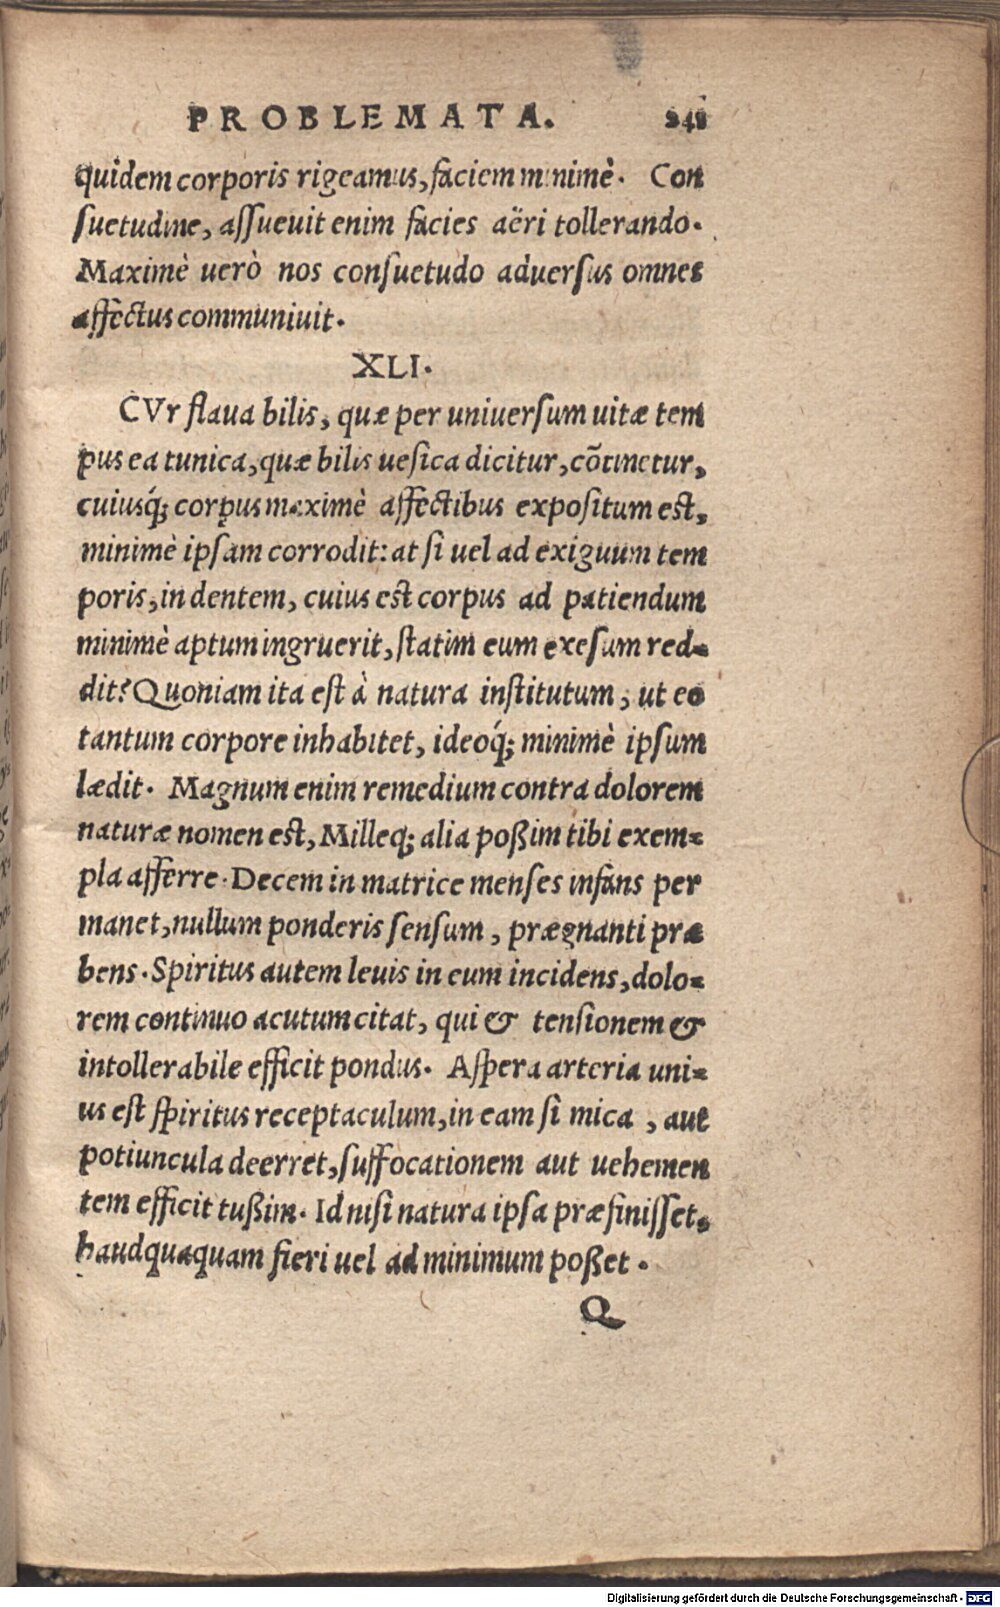 PROBLEMATA. 241
quidem corporis rigeamus, faciem minimè. Con
ſuetudine, aſſueuit enim facies aëri tollerando.
Maximè uerò nos conſuetudo aduerſus omnes
affectus communiuit.
XLI.
CVr flaua bilis, quæ per uniuerſum uitæ tem
pus ea tunica, quæ bilis ueſica dicitur, cõtinetur,
cuiusq́; corpus maximè affectibus expoſitum eſt,
minimè ipſam corrodit: at ſi uel ad exiguum tem
poris, in dentem, cuius eſt corpus ad patiendum
minimè aptum ingruerit, ſtatim eum exeſum red=
dit? Quoniam ita eſt à natura inſtitutum, ut eo
tantum corpore inhabitet, ideoq́; minimè ipſum
lædit. Magnum enim remedium contra dolorem
naturæ nomen eſt, Milleq; alia poßim tibi exem=
pla afferre. Decem in matrice menſes infans per
manet, nullum ponderis ſenſum, prægnanti præ
bens. Spiritus autem leuis in eum incidens, dolo=
rem continuo acutum citat, qui & tenſionem &
intollerabile efficit pondus. Aſpera arteria uni=
us eſt ſpiritus receptaculum, in eam ſi mica, aut
potiuncula deerret, ſuffocationem aut uehemen
tem efficit tußim. Id niſi natura ipſa præfiniſſet,
haudquaquam fieri uel ad minimum poßet.
Q
Digitalisierung gefördert durch die Deutsche Forschungsgemeinschaft - DFG